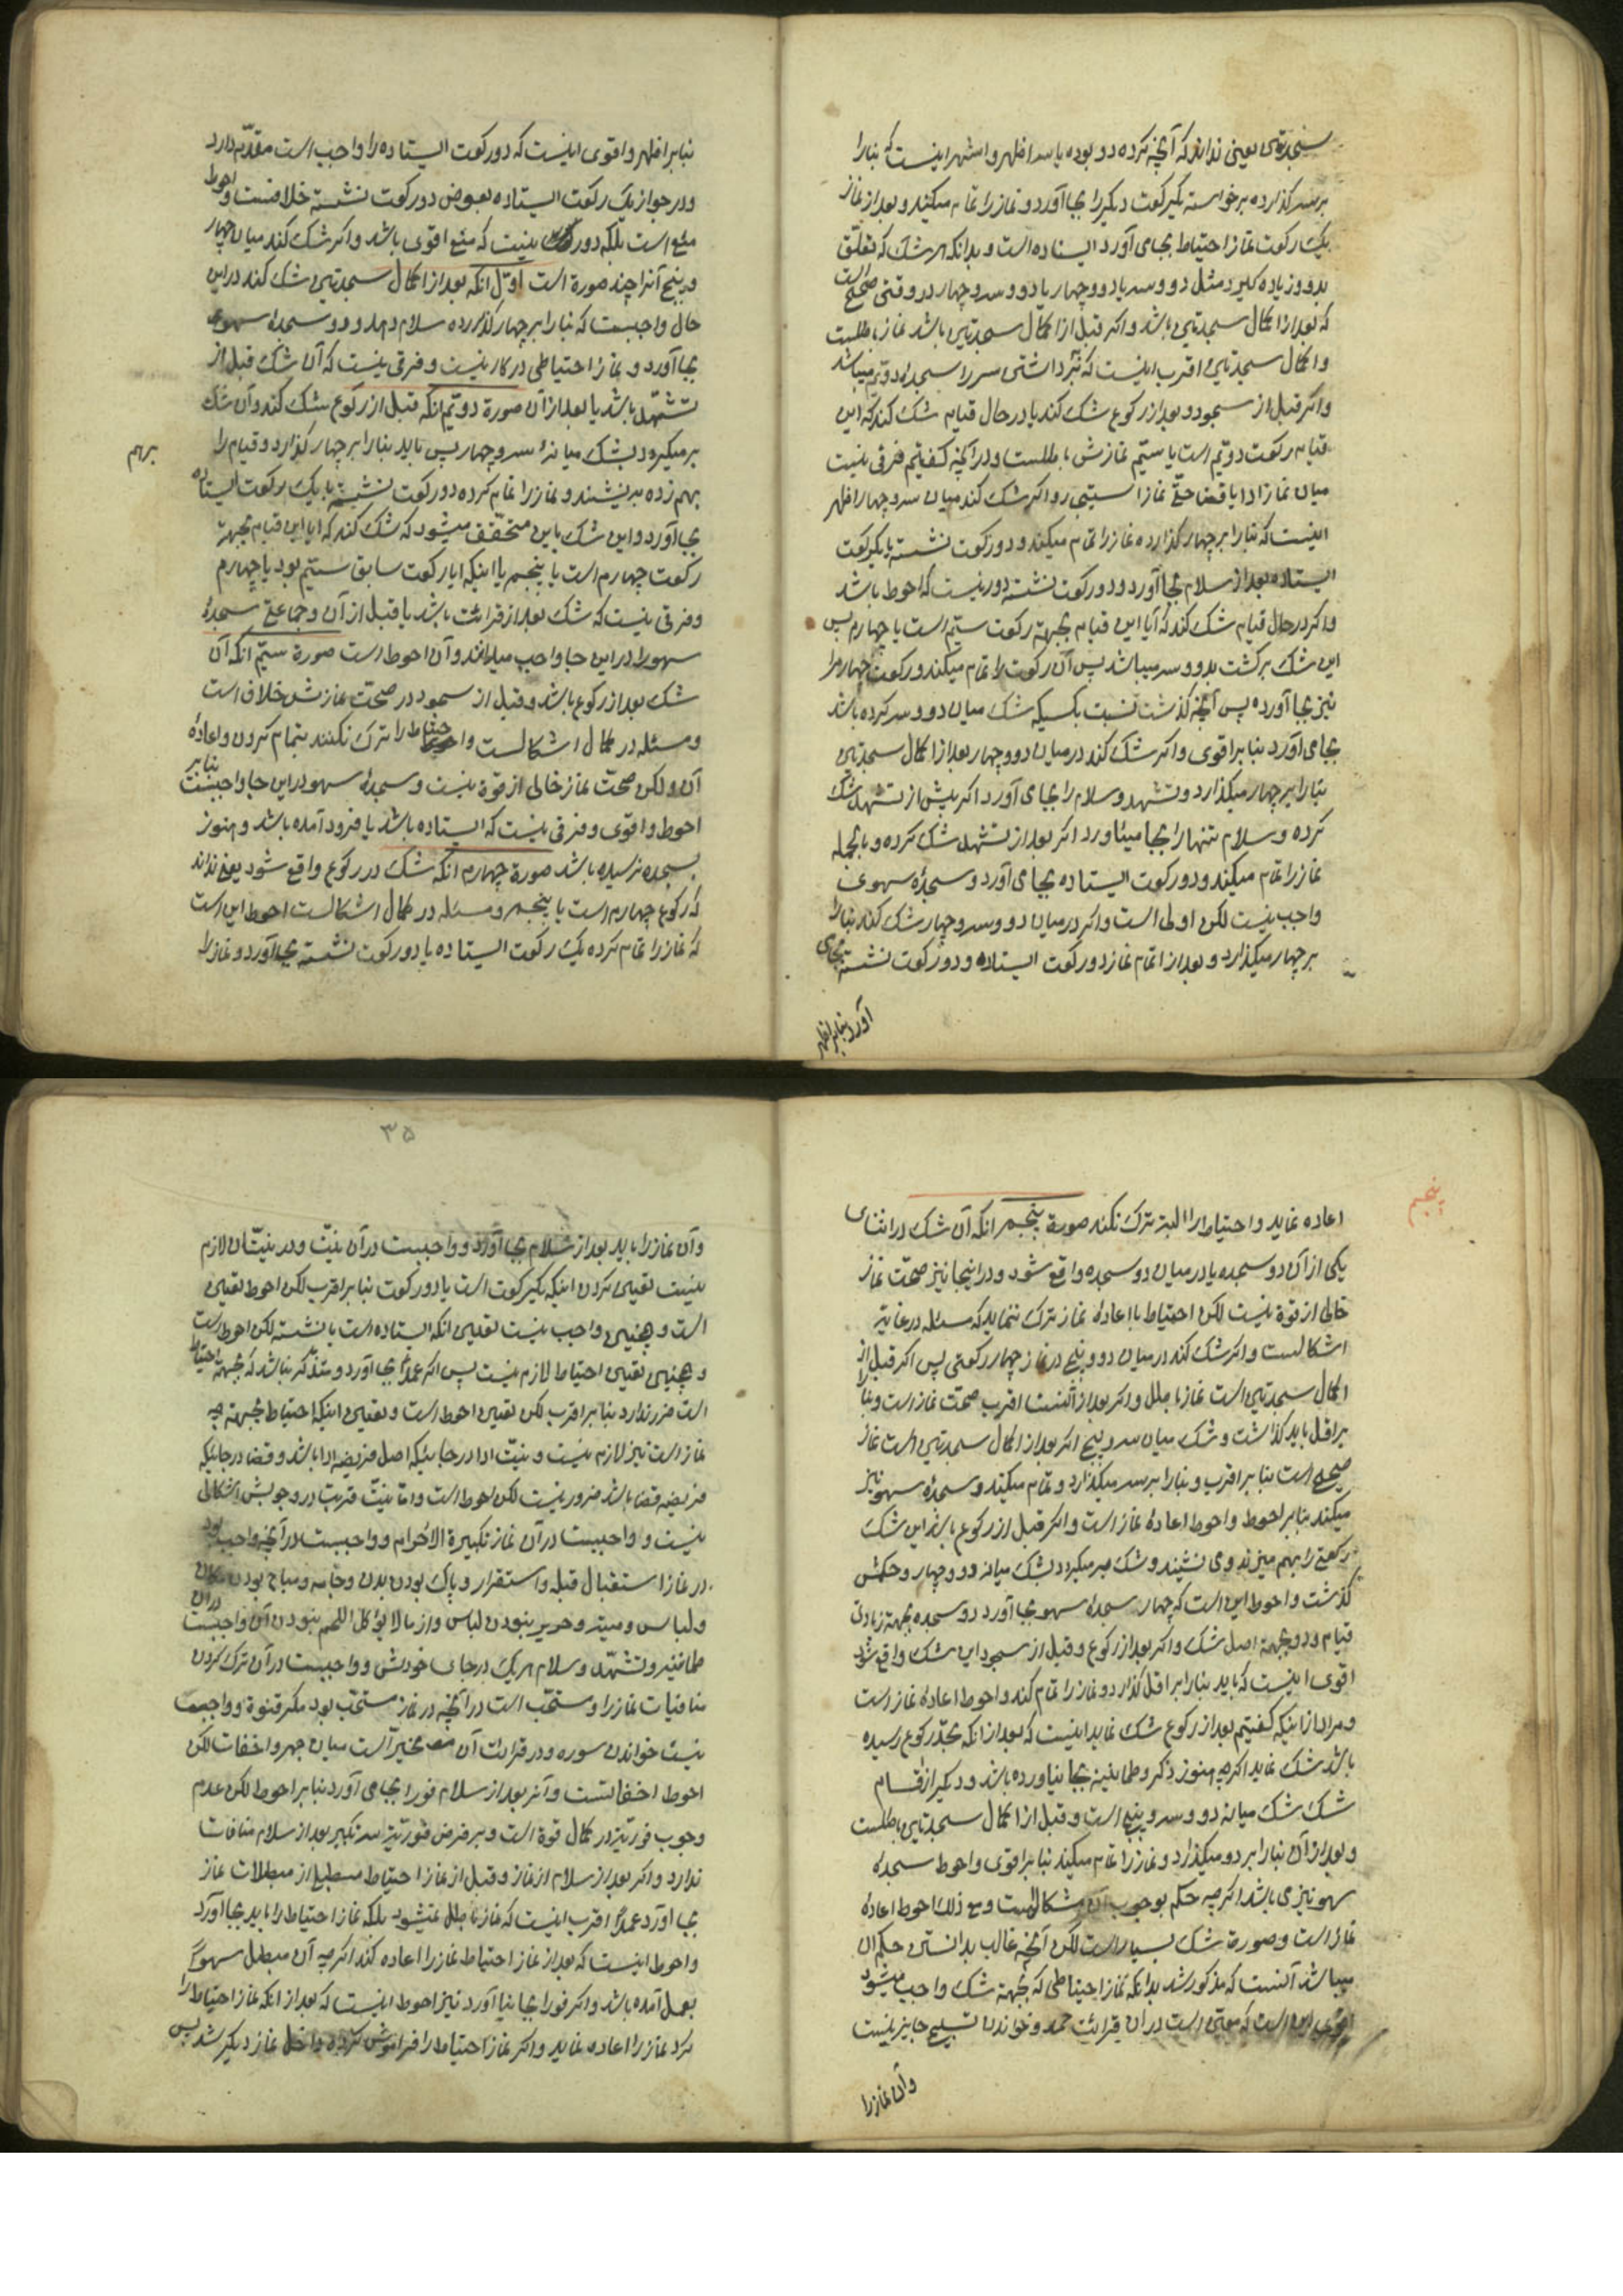 سجدتین یعنی نداند که آنچه کرده دو بوده یا سه اظهر و اشهر اینست که بنا را
بر سه گذارده برخواسته یکرکعت دیگر را بجا آورد و نماز را تمام میکند و بعد از نماز
یک رکعت نماز احتیاط بجای آورد ایستاده است و بدانکه هر شک که تعلق
بدو و زیاده گیرد مثل دو و سه یا دو و چهار یا دو و سه و چهار در وقتی صحیح است
که بعد از اکمال سجدتین باشد و اگر قبل از اکمال سجدتین باشد نماز باطلست
و اکمال سجدتین اقرب اینست که ببرداشتن سر از سجده دویم میباشد
و اگر قبل از سجود و بعد از رکوع شک کند یا در حال قیام شک کند که این
قیام رکعت دویم است یا سیم نمازش باطلست و در آنچه گفتیم فرقی نیست
میان نماز ادا یا قضا حتی نماز استیجار و اگر شک کند میان سه و چهار اظهر
اینست که بنا را بر چهار گذارده نماز را تمام میکند و دو رکعت نشسته یا یکرکعت
ایستاده بعد از سلام بجا آورد و دو رکعت نشسته دور نیست که احوط باشد
و اگر در حال قیام شک کند که آیا این قیام بجهة رکعت سیم است یا چهارم پس
این شک برگشت بدو و سه میباشد پس آن رکعت را تمام میکند و رکعت چهارم را
نیز بجا آورده پس آنچه گذشت نسبت بکسیکه شک میان دو و سه کرده باشد
بجای آورد بنا بر اقوی و اگر شک کند در میان دو و چهار بعد از اکمال سجدتین
بنا را بر چهار میگذارد و تشهد و سلام را بجای آورد اگر پیش از تشهد شک
کرده و سلام تنها را بجا میآورد اگر بعد از تشهد شک کرده و بالجمله
نماز را تمام میکند و دو رکعت ایستاده بجای آورد و سجده سهوی
واجب نیست لکن اولی است و اگر در میان دو و سه و چهار شک کند بنا را
بر چهار میگذارد و بعد از اتمام نماز دو رکعت ایستاده و دو رکعت نشسته بجای
آورد بنا بر اظهر
بنا بر اظهر و اقوی اینست که دو رکعت ایستاده را واجب است مقدم دارد
و در جواز یک رکعت ایستاده بعوض دو رکعت نشسته خلافست و احوط
منع است بلکه دور نیست که منع اقوی باشد و اگر شک کند میان چهار
و پنج آنرا چند صورة است اول آنکه بعد از اکمال سجدتین شک کند در این
حال واجبست که بنا را بر چهار گذارده سلام دهد و دو سجده سهو
بجا آورد و نماز احتیاطی در کار نیست و فرقی نیست که آن شک قبل از
تشهد باشد یا بعد از آن صورة دویم آنکه قبل از رکوع شک کند و آن شک
بر میگردد بشک میانه سه و چهار پس باید بنا را بر چهار گذارد و قیام را
برهم
بهم زده بنشیند و نماز را تمام کرده دو رکعت نشسته یا یک رکعت ایستاده
بجا آورد و این شک باین متحقق میشود که شک کند که ایا این قیام بجهة
رکعت چهارم است یا پنجم یا اینکه ایا رکعت سابق سیم بود یا چهارم
و فرقی نیست که شک بعد از قرائت باشد یا قبل از آن و جماعتی سجده
سهو را در این جا واجب میدانند و آن احوط است صورة سیم آنکه آن
شک بعد از رکوع باشد و قبل از سجود در صحت نمازش خلاف است
و مسئله در کمال اشکالست و احتیاط را ترک نکنند بتمام کردن و اعاده
آن و لکن صحت نماز خالی از قوة نیست و سجده سهو در این جا واجبست بنا بر
احوط و اقوی و فرقی نیست که ایستاده باشد یا فرود آمده باشد و هنوز
بسجده نرسیده باشد صورة چهارم آنکه شک در رکوع واقع شود یعنی نداند
که رکوع چهارم است یا پنجم و مسئله در کمال اشکالست احوط این است
که نماز را تمام کرده یک رکعت ایستاده یا دو رکعت نشسته بجا آورد و نماز را
پنجم
اعاده نماید و احتیاط را البته ترک نکند صورة پنجم آنکه آن شک در اثنای
یکی از آن دو سجده یا در میان دو سجده واقع شود و در اینجا نیز صحت نماز
خالی از قوة نیست لکن احتیاط با اعاده نماز ترک ننماید که مسئله در غایة
اشکالست و اگر شک کند در میان دو و پنج در نماز چهار رکعتی پس اگر قبل از
اکمال سجدتین است نماز باطل و اگر بعد از آنست اقرب صحت نماز است و بنا را
بر اقل باید گذاشت و شک میان سه و پنج اگر بعد از اکمال سجدتین است نماز
صحیح است بنا بر اقرب و بنا را بر سه میگذارد و تمام میکند و سجده سهو نیز
میکند بنا بر احوط و احوط اعاده نماز است و اگر قبل از رکوع باشد این شک
رکعتی را بهم میزند و می نشیند و شک بر میگردد بشک میانه دو و چهار و حکمش
گذشت و احوط این است که چهار سجده سهو بجا آورد دو سجده بجهة زیادتی
قیام و دو بجهة اصل شک و اگر بعد از رکوع و قبل از سجود این شک واقع شود
اقوی اینست که باید بنا را بر اقل گذارد و نماز را تمام کند و احوط اعاده نماز است
و مراد از اینکه گفتیم بعد از رکوع شک نماید اینست که بعد از آنکه بحد رکوع رسیده
باشد شک نماید اگرچه هنوز ذکر و طمانینه بجا نیاورده باشد و دیگر از اقسام
شک شک میانه دو و سه و پنج است و قبل از اکمال سجدتین باطلست
و بعد از آن بنا را بر دو میگذارد و نماز را تمام میکند بنا بر اقوی و احوط سجده
سهو نیز می باشد اگرچه حکم بوجوب آن مشکلست و مع ذلک احوط اعاده
نماز است و صورت شک بسیار است لکن آنچه غالب بدانستن حکم آن
میباشد آنست که مذکور شد بدانکه نماز احتیاطی که بجهة شک واجب میشود
اقوی این است که معین است در آن قرائت حمد و خواندن تسبیح جایز نیست
و آن نماز را
۳۵
و آن نماز را باید بعد از سلام بجا آورد و واجبست در آن نیت و در نیت آن لازم
نیست تعیین کردن اینکه یکرکعت است یا دو رکعت بنا بر اقرب لکن احوط تعیین
است و همچنین واجب نیست تعیین آنکه ایستاده است یا نشسته لکن احوط است
و همچنین تعیین احتیاط لازم نیست پس اگر عمدا بجا آورد و متذکر نباشد که بجهة احتیاط
است ضرر ندارد بنا بر اقرب لکن تعیین احوط است و تعیین اینکه احتیاط بجهة چه
نماز است نیز لازم نیست و نیت ادا در جائیکه اصل فریضه ادا باشد و قضا در جائیکه
فریضه قضا باشد ضرور نیست لکن احوط است و اما نیت قربت در وجوبش اشکالی
نیست و واجبست در آن نماز تکبیرة الاحرام و واجبست در آن آنچه واجب بود
در نماز از استقبال قبله و استقرار و پاک بودن بدن و جامه و مباح بودن مکان
و لباس و میته و حریر نبودن لباس و از مالا یؤکل اللحم نبودن آن و واجبست در آن
طمانینه و تشهد و سلام هر یک در جای خودش و واجبست در آن ترک کردن
منافیات نماز را و مستحب است در آن آنچه در نماز مستحب بود مگر قنوة و واجب
نیست خواندن سوره و در قرائت آن مخیر است میان جهر و اخفات لکن
احوط اخفاتست و آنرا بعد از سلام فورا بجای آورد بنا بر احوط لکن عدم
وجوب فوریتش در کمال قوة است و بر فرض فوریتش سه تکبیر بعد از سلام منافات
ندارد و اگر بعد از سلام از نماز و قبل از نماز احتیاط مبطلی از مبطلات نماز
بجا آورد عمدا اقرب اینست که نماز باطل نمیشود بلکه نماز احتیاط را باید بجا آورد
و احوط اینست که بعد از نماز احتیاط نماز را اعاده کند اگرچه آن مبطل سهوا
بعمل آمده باشد و اگر فورا بجا نیاورد نیز احوط اینست که بعد از آنکه نماز احتیاط را
کرد نماز را اعاده نماید و اگر نماز احتیاط را فراموش کرده داخل نماز دیگر شد پس